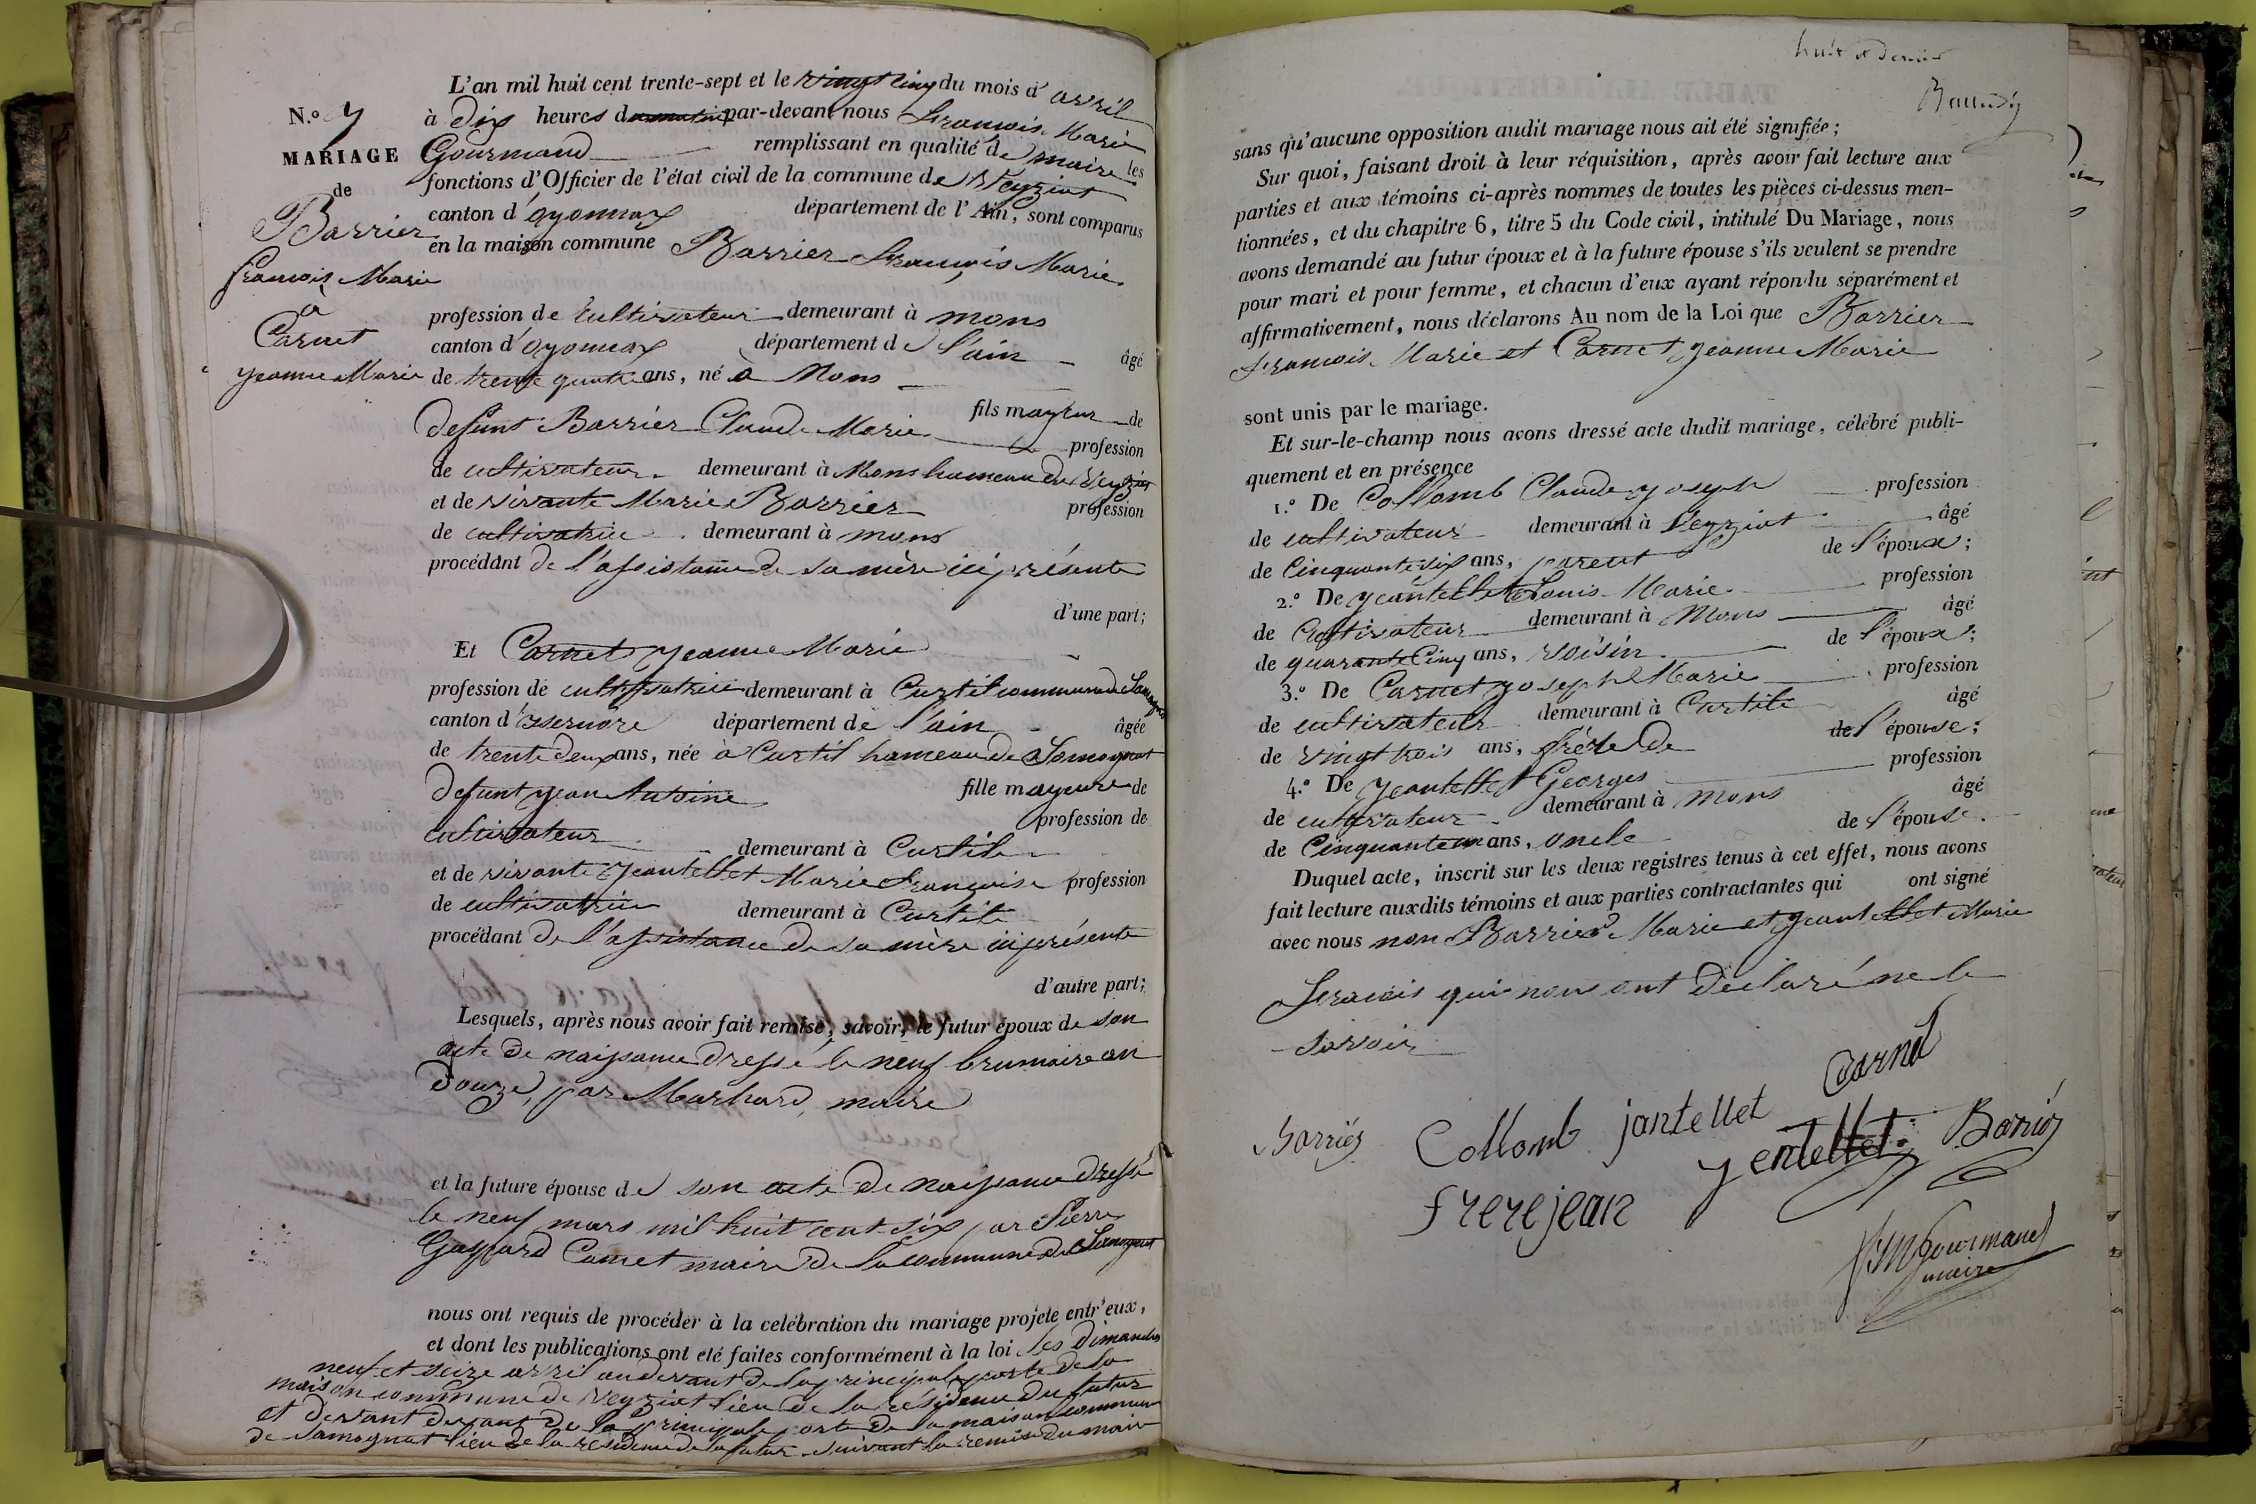 L'an mil huit cent trente-sept et le vingt cinq du mois d'avril
N.o 7
à dix heures du matin par-devant nous François Marie
MARIAGE
Gourmand remplissant en qualité de maire les
de
fonctions d'Officier de l'état civil de la commune de Veyziat
Barrier
canton d'oyonnax département de l'Ain, sont comparus
en la maison commune Barrier François Marie
françois Marie
à
profession de Cultivateur demeurant à mons
Carnet
canton d'oyonnax département de l'ain âgé
jeanne Marie
de trente quatre ans, né à Mons
fils mayeur de
defunt Barrier Claude Marie profession
de cultivateur demeurant à Mons hameau de Veyziat
et de vivante Marie Barrier profession
de cultivatrice demeurant à mons
procédant de l'assistance de sa mère ici présente
d'une part;
Et Carnet jeanne Marie
profession de cultivatrice demeurant à Curtil commune de Samognat
canton d'isernore département de l'ain âgée
de trente deux ans, née à Curtil hameau de Samognat
fille mayeure de
defunt jean Antoine
profession de
cultivateur demeurant à Curtil
et de vivante jeantellet Marie Françoise profession
de cultivatrice demeurant à Curtil
procédant de l'assistance de sa mère ici présente
d'autre part;
Lesquels, après nous avoir fait remise, savoir, le futur époux de son
acte de naissance dressé le neuf brumaire an
douze, par Marhard, maire
et la future épouse de son acte de naissance dressé
le neuf mars mil huit cent six par Pierre
Gaspard Carnet maire de la commune de Samognat
nous ont requis de procéder à la celébration du mariage projeté entr'eux,
et dont les publications ont eté faites conformément à la loi les Dimanches
neuf et seize avril au devant de la principale porte de la
maison commune de Veyziat lieu de la résidence du futur
et devant devant de la principale porte de la maison commune
de Samognat lieu de la residence de la future suivant la remise du maire
huit et dernier
Baudy
sans qu'aucune opposition audit mariage nous ait été signifiée;
Sur quoi, faisant droit à leur réquisition, après avoir fait lecture aux
parties et aux témoins ci-après nommes de toutes les pièces ci-dessus men-
tionnées, et du chapitre 6, titre 5 du Code civil, intitulé Du Mariage, nous
avons demandé au futur époux et à la future épouse s'ils veulent se prendre
pour mari et pour femme, et chacun d'eux ayant répondu séparément et
affirmativement, nous déclarons Au nom de la Loi que Barrier
François Marie et Carnet jeanne Marie
sont unis par le mariage.
Et sur-le-champ nous avons dressé acte dudit mariage, célébré publi-
quement et en présence
1.o De Collomb Claude joseph profession
de cultivateur demeurant à Veyziat âgé
de Cinquante six ans, parent de l'époux;
2.o De jeantellet Louis Marie profession
de Cultivateur demeurant à Mons âgé
de quarante Cinq ans, voisin de l'époux;
3.o De Carnet joseph Marie profession
de cultivateur demeurant à Curtil âgé
de vingt trois ans, frére de de l'épouse;
4.o De jeantellet Georges profession
de cultivateur demeurant à mons âgé
de Cinquante un ans, oncle de l'épouse.
Duquel acte, inscrit sur les deux registres tenus à cet effet, nous avons
fait lecture auxdits témoins et aux parties contractantes qui ont signé
avec nous non Barrier Marie et jeantellet Marie
Francoise qui nous ont déclaré ne le
savoir
Carnet
Barrier Collomb jantellet
yentellet Barrier
frerejean
fM Gourmand
maire